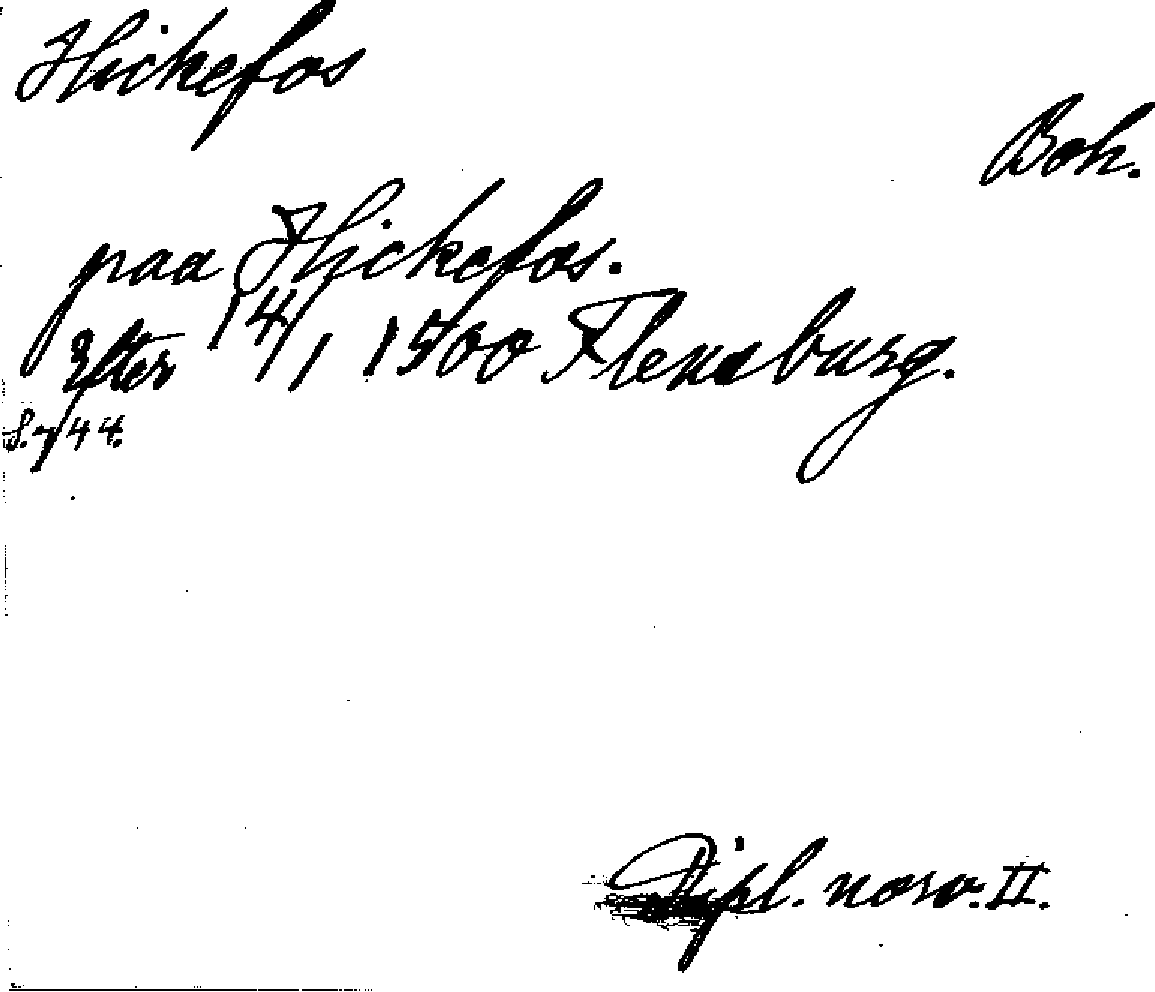 Hickefos
Boh.
paa Hickefos.
Efter 14/1 1500 Flensburg.
S. 744.
Dipl. norv. II.